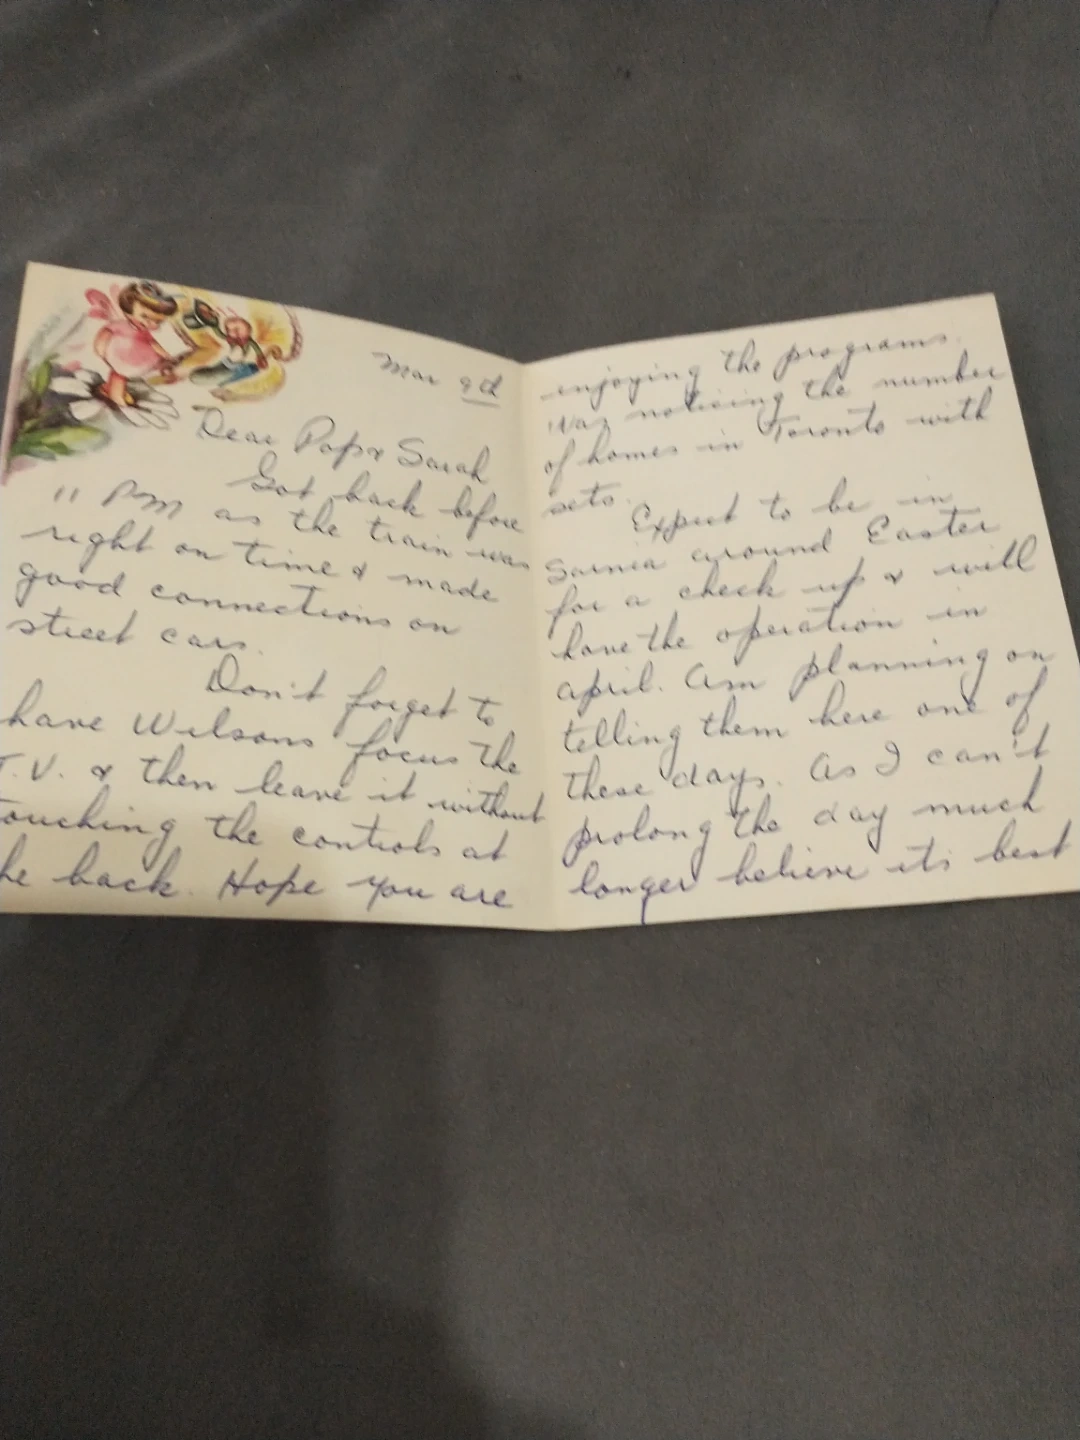 Mar 9th
Dear Pap & Sarah
Got back before
11 PM as the train was
right on time & made
good connections on
street cars.
Don't forget to
have Wilsons focus the
T.V. & then leave it without
touching the controls at
he back. Hope you are
enjoying the programs.
Was noticing the number
of homes in Toronto with
sets.
Expect to be in
Sarnia around Easter
for a check up & will
have the operation in
april. Am planning on
telling them here one of
these days. As I can't
prolong the day much
longer believe its best